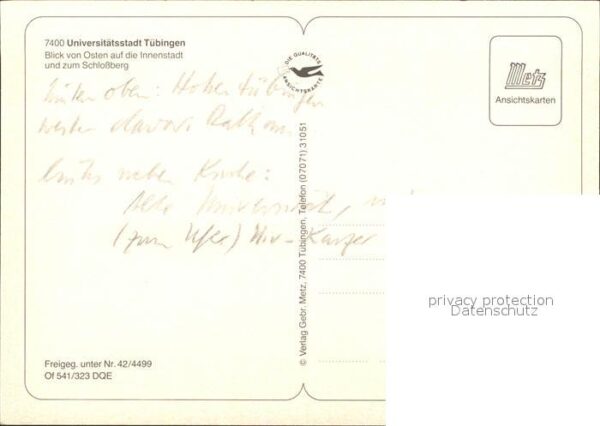 7400 Universitätsstadt Tübingen
Blick von Osten auf die Innenstadt
und zum Schloßberg
DIE QUALITÄTS
ANSICHTSKARTE
Metz
Ansichtskarten
hinten oben: Hohentübingen
weiter davor: Rathaus
links neben Kirche:
Alte Universität,
(zum Ufer)
© Verlag Gebr. Metz, 7400 Tübingen, Telefon (07071) 31051
privacy protection
Datenschutz
Freigeg. unter Nr. 42/4499
Of 541/323 DQE